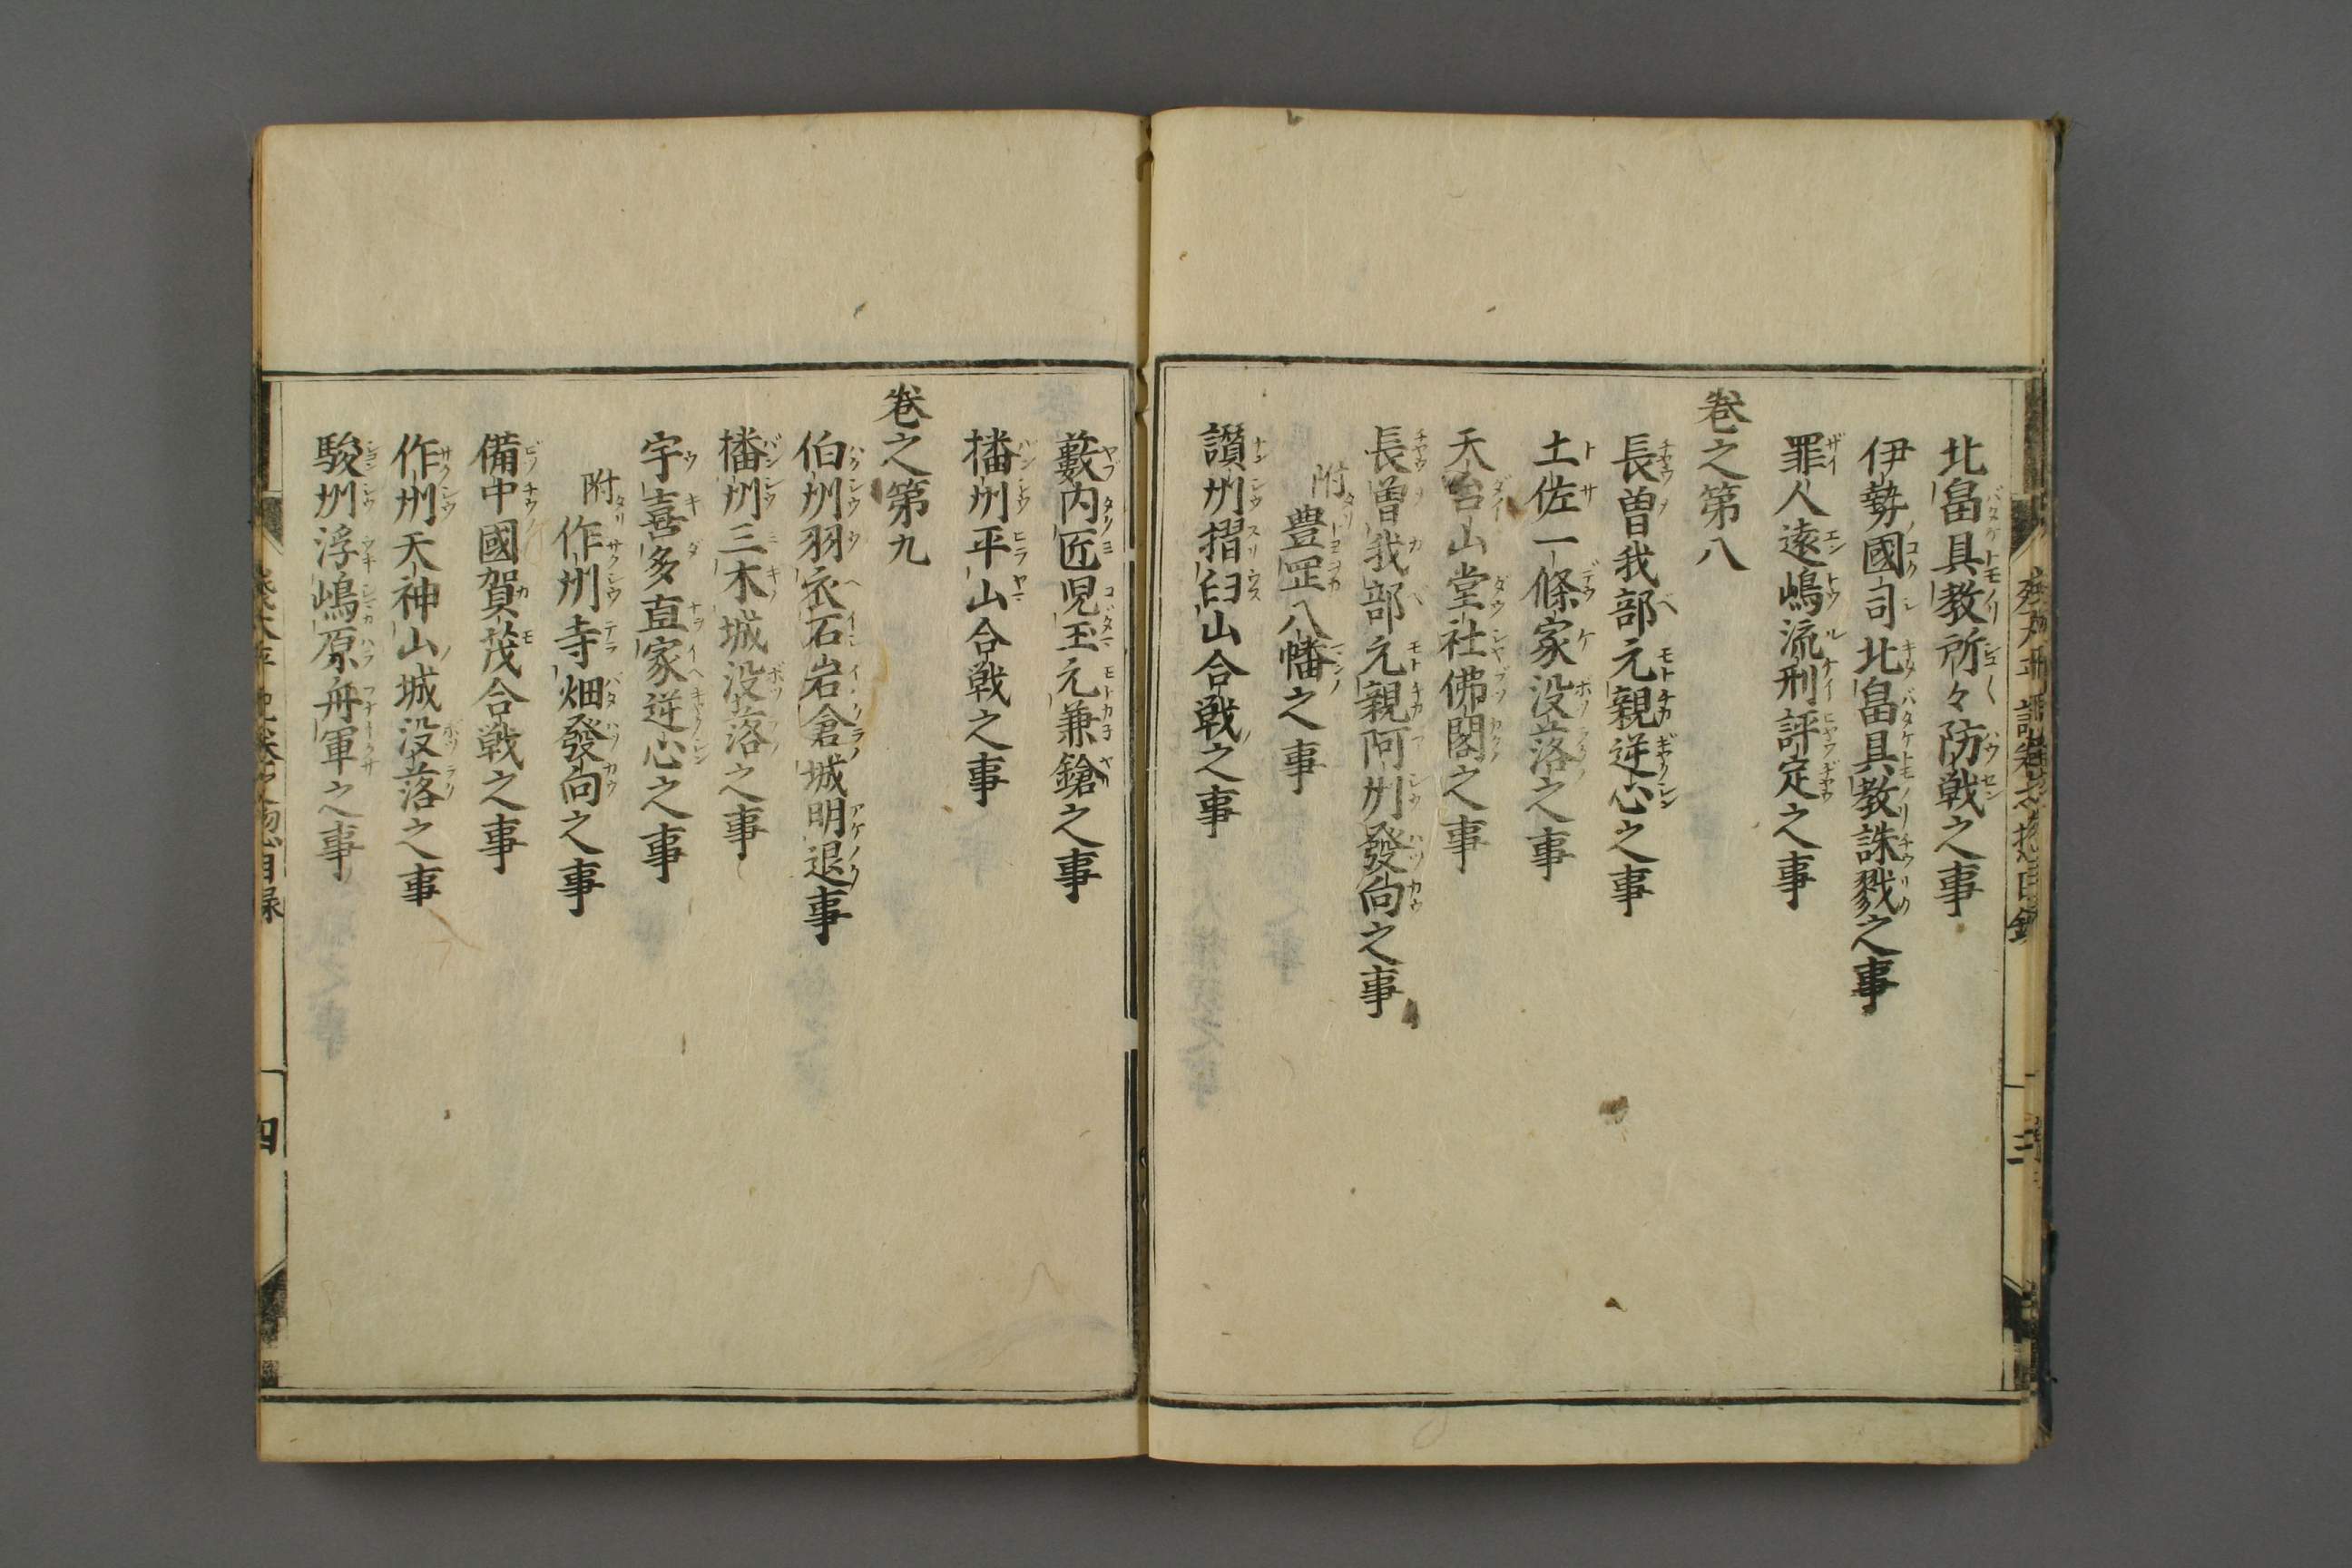 北畠具教所々防戦之事
伊勢國司北畠具教誅戮之事
罪人遠嶋流刑評定之事
巻之第八
長曽我部元親逆心之事
土佐一條家没落之事
天台山堂社佛閣之事
長曽我部元親阿州發向之事
附豊罡八幡之事
讃州摺臼山合戦之事
藪内匠児玉元兼鎗之事
播州平山合戦之事
巻之第九
伯州羽衣石岩倉城明退事
播州三木城没落之事
宇喜多直家逆心之事
附作州寺畑發向之事
備中國賀茂合戦之事
作州天神山城没落之事
駿州浮嶋原舟軍之事
四